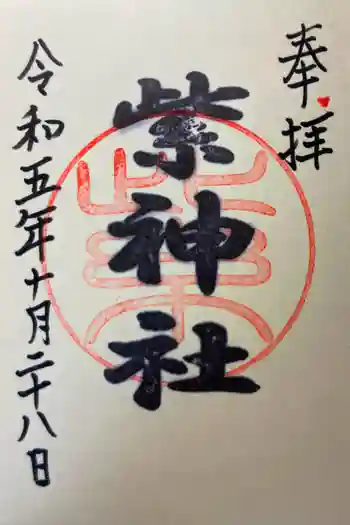 奉拝
紫神社
令和五年十月二十八日